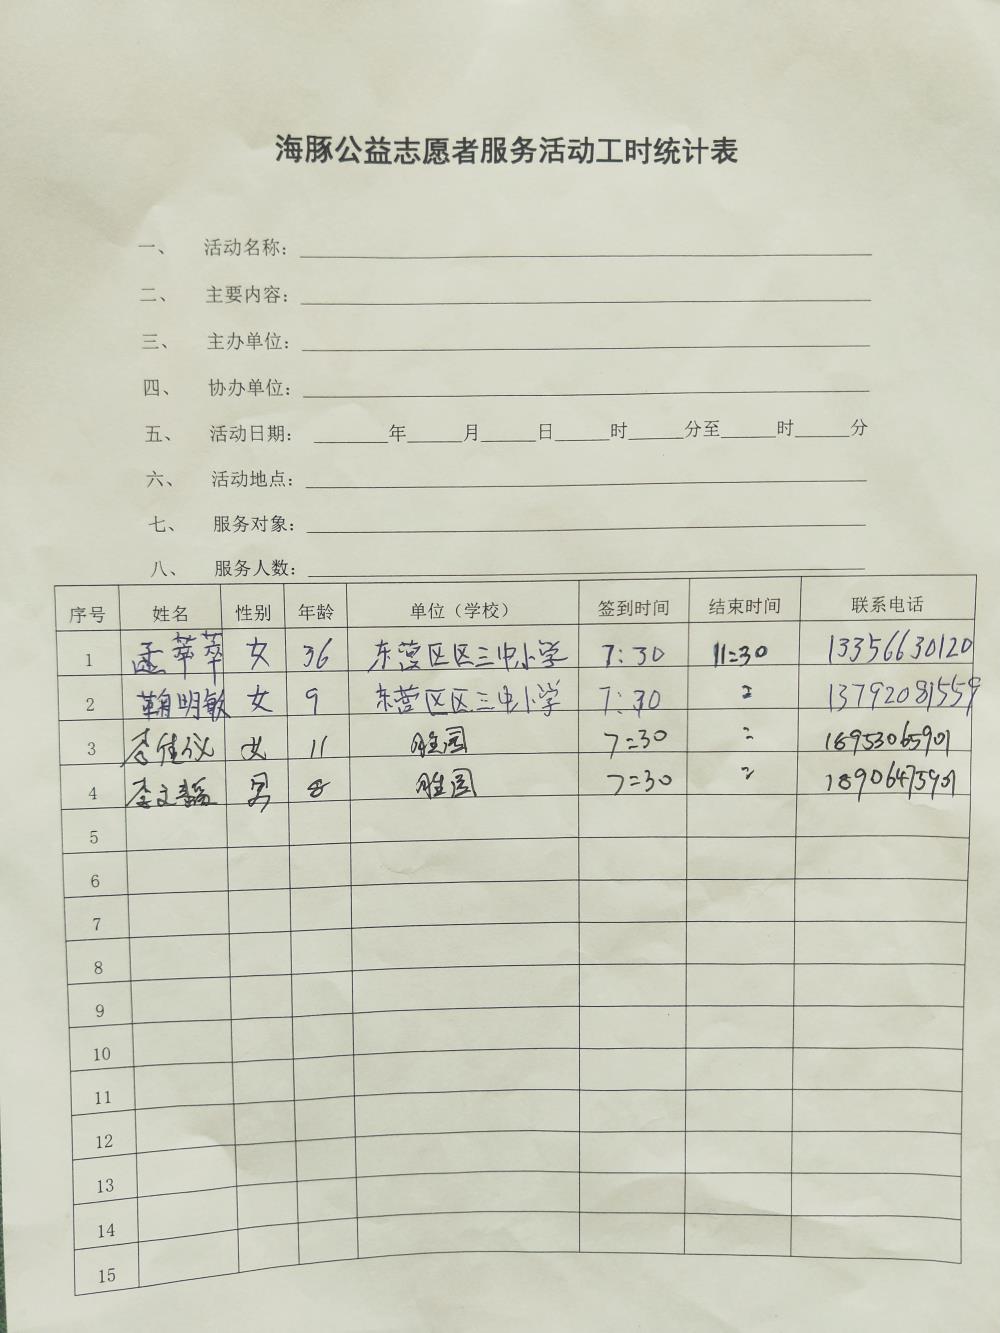 海豚公益志愿者服务活动工时统计表
一、 活动名称：
二、 主要内容：
三、 主办单位：
四、 协办单位：
五、 活动日期： 年 月 日 时 分至 时 分
六、 活动地点：
七、 服务对象：
八、 服务人数：
序号 姓名 性别 年龄 单位（学校） 签到时间 结束时间 联系电话
1 孟苹苹 女 36 东营区区三中小学 7:30 11:30 13356630120
2 鞠明敏 女 9 东营区区三中小学 7:30 〃 13792081559
3 李佳仪 女 11 胜园 7:30 〃 18953065901
4 李文 男 8 胜园 7:30 〃 18906475901
5
6
7
8
9
10
11
12
13
14
15